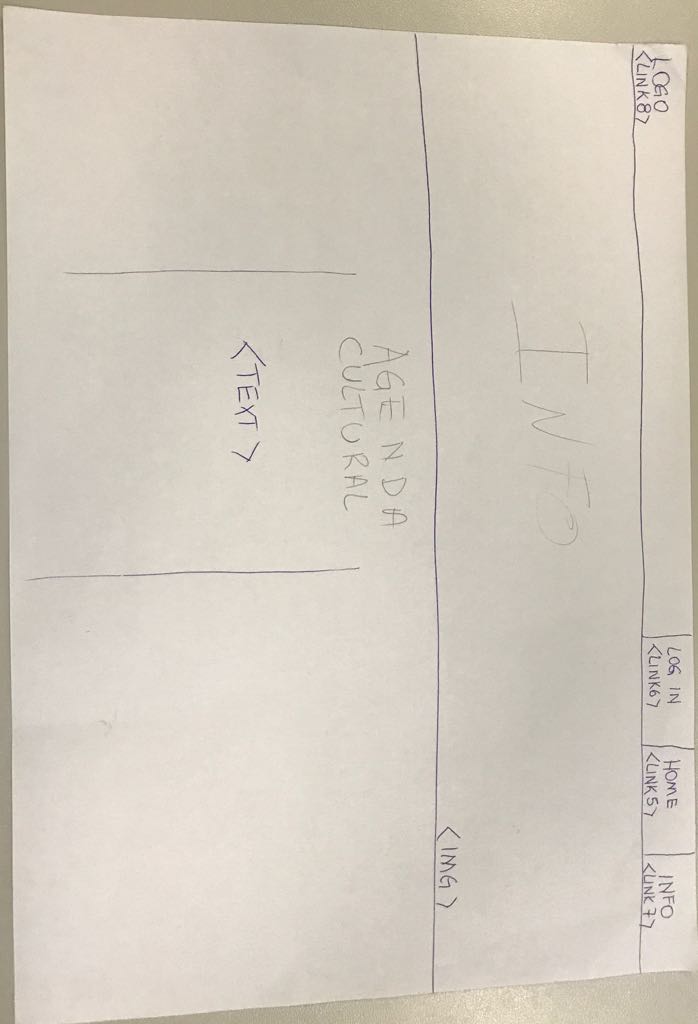 LOGO
<LINK8>
LOG IN
<LINK6>
HOME
<LINK5>
INFO
<LINK7>
INFO
<IMG>
AGENDA
CULTURAL
<TEXT>